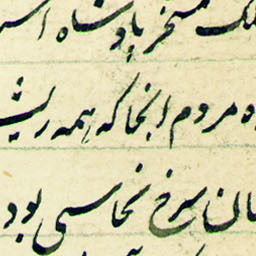 ملک مسخر پادشاه اس
ه مردم انجا که همه ریش
ان سرخ نحاسی بود